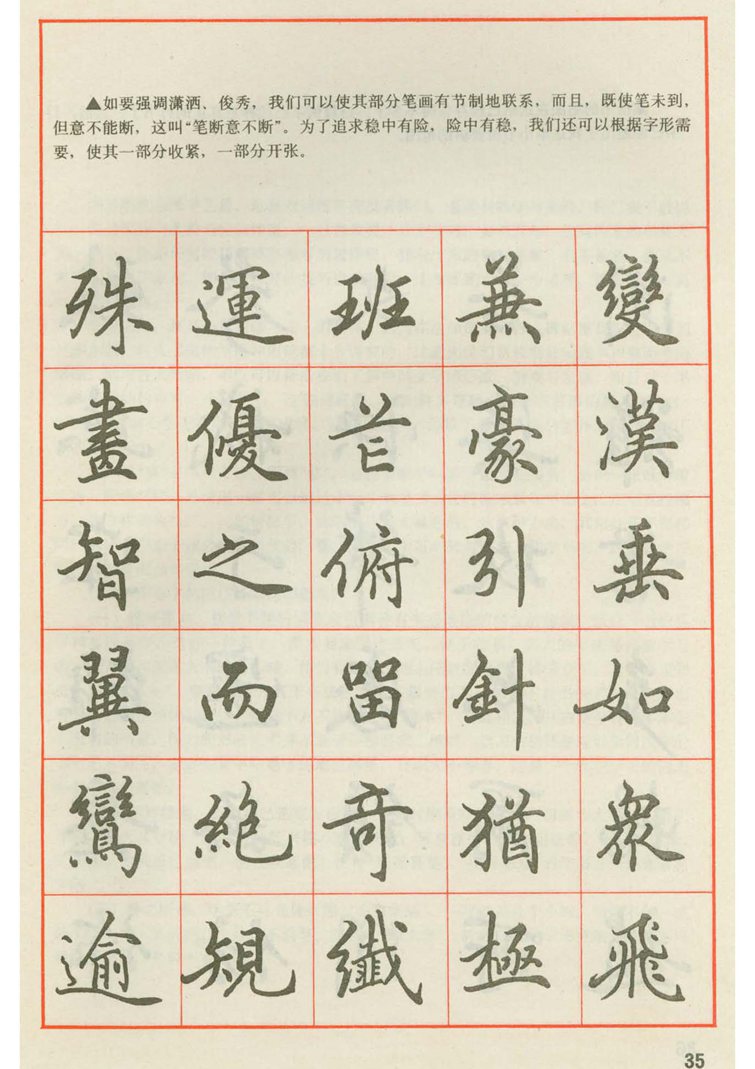 ▲如要强调潇洒、俊秀，我们可以使其部分笔画有节制地联系，而且，既使笔未到，
但意不能断，这叫“笔断意不断”。为了追求稳中有险，险中有稳，我们还可以根据字形需
要，使其一部分收紧，一部分开张。
殊運班兼變
畫優芒豪漢
智之俯引垂
翼而留針如
鸞絕奇猶衆
逾規纖極飛
35